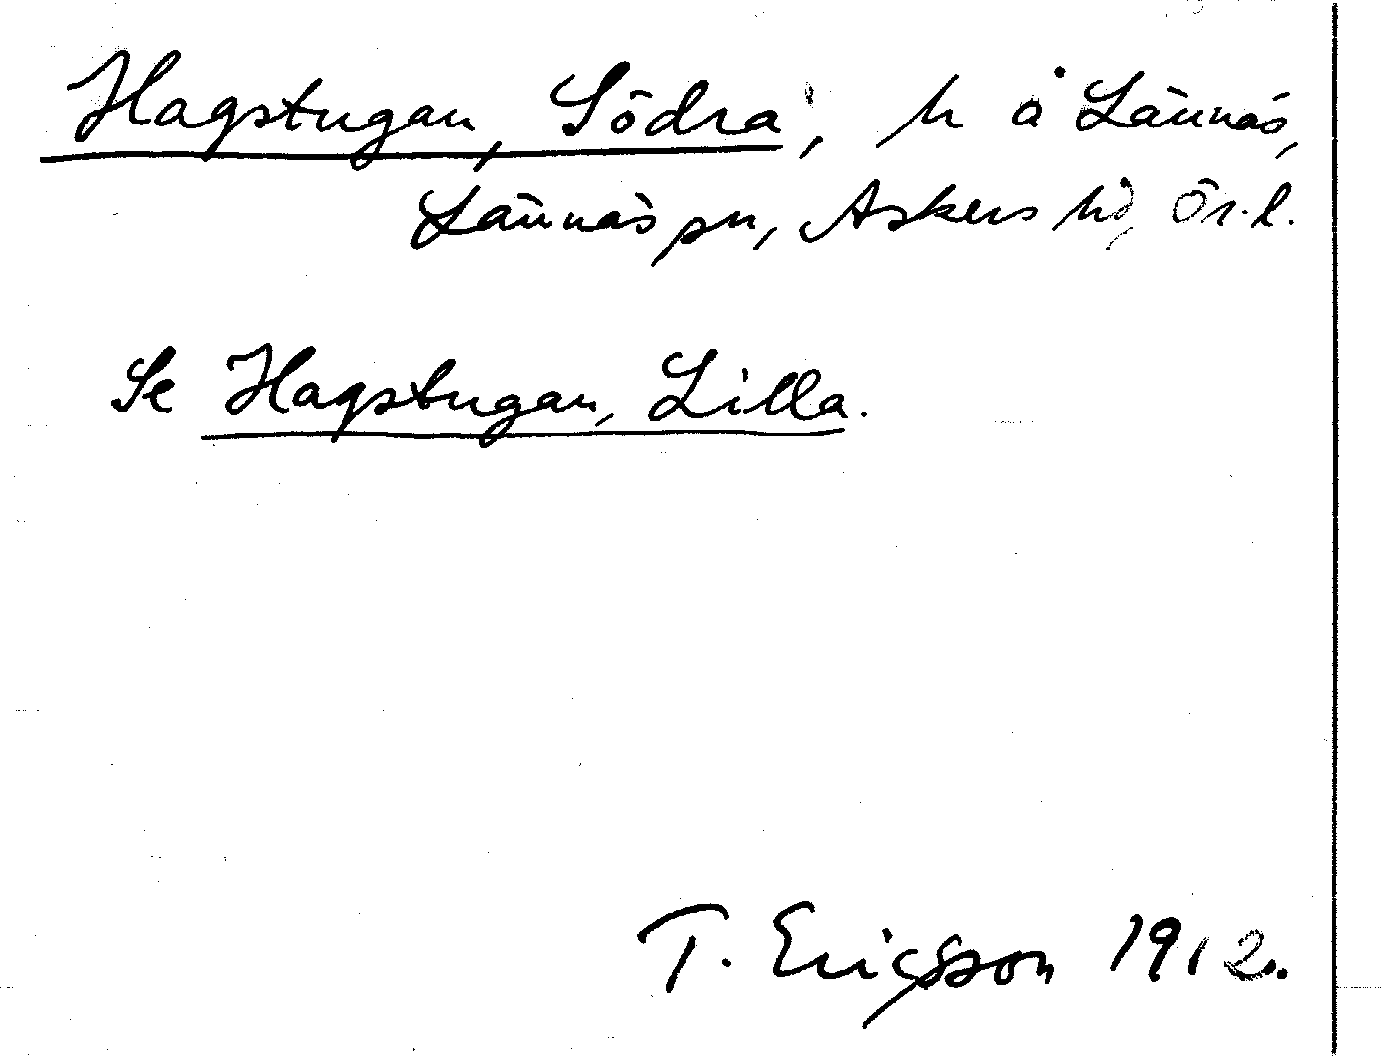 Hagstugan, Södra, h å Lännäs,
Lännäs sn, Askers hd, Ör. l.
Se Hagstugan, Lilla.
T. Ericsson 1912.